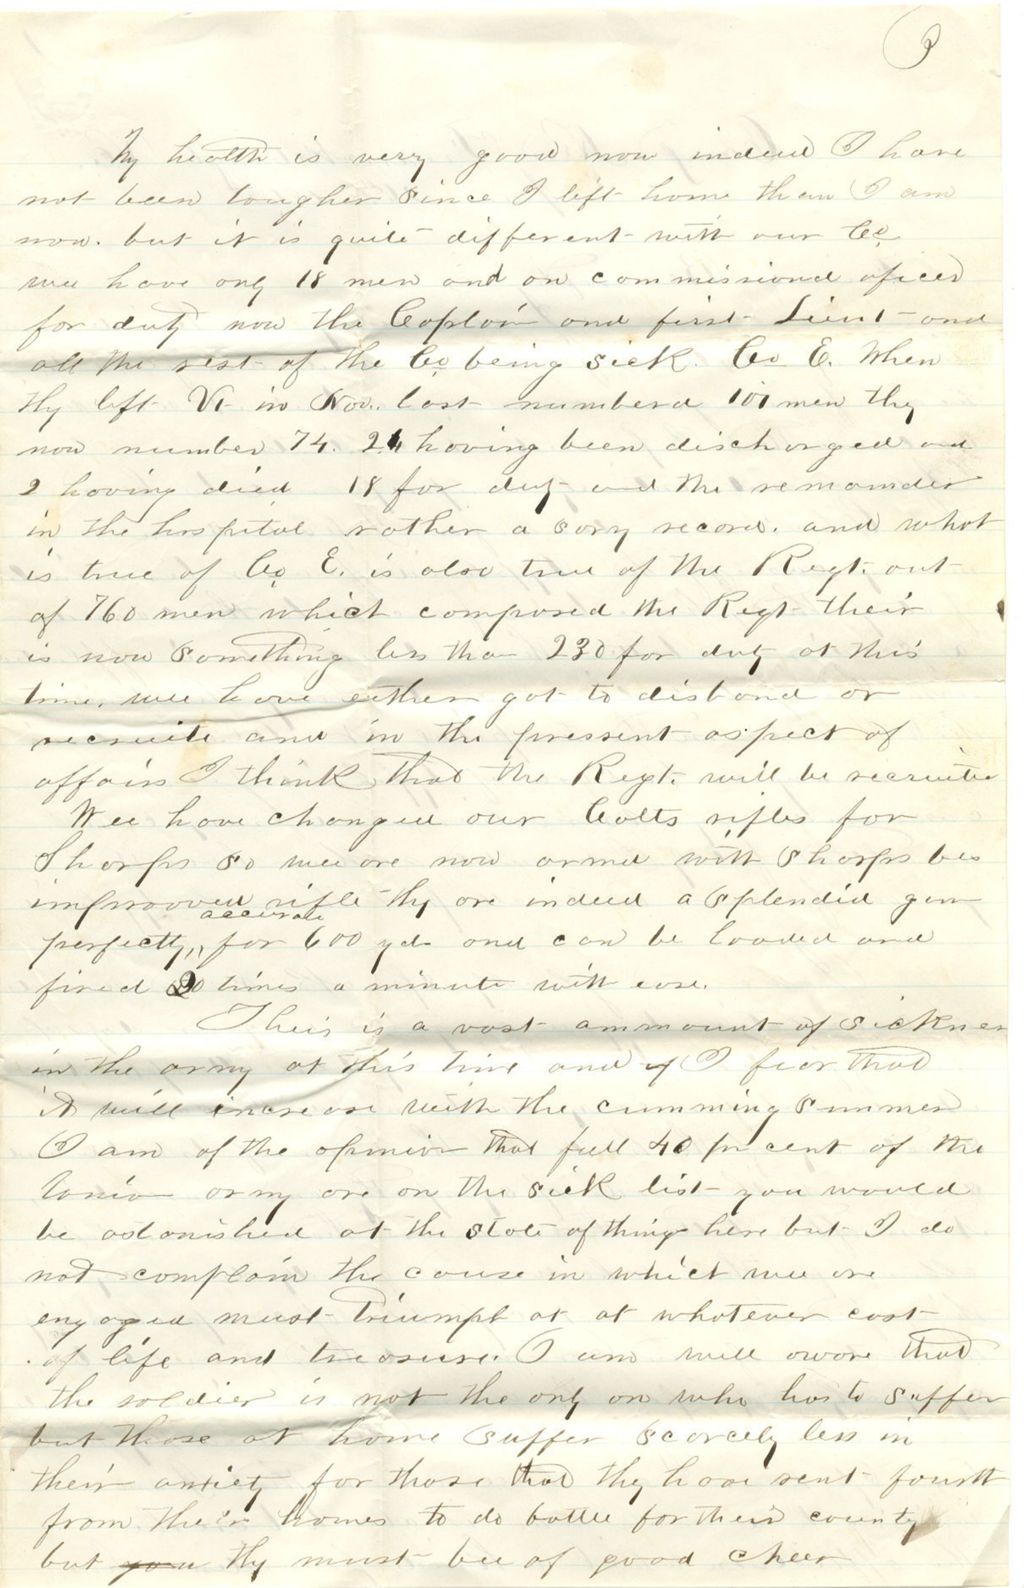 3
My health is very good now indeed I have
not been tougher since I left home than I am
now. but it is quite different with our Co
wee have ony 18 men and on commissiond oficer
for duty now the Captain and first Lieut and
all the rest of the Co being sick. Co E. When
thy left Vt in Nov. last numberd 101 men thy
now number 74. 24 having been discharged and
2 having died 18 for duty and the remainder
in the hospital rather a sory record. and what
is true of Co E. is also true of the Regt. out
of 760 men which composed the Regt their
is now something less than 230 for duty at this
time. wee have either got to disband or
recruite and in the pressent aspect of
affairs I think that the Regt. will be recruited
Wee have changed our Colts rifles for
Sharps so wee are now armed with Sharps
improoved rifle thy are indeed a splendid gun
perfectly accurate for 600 yds and can be loaded and
fired 20 times a minute with ease.
Their is a vast ammount of sickness
in the army at this time and I fear that
it will increase with the cumming summer
I am of the opinion that full 40 per cent of the
Union army are on the sick list you would
be astonished at the state of things here but I do
not complain the cause in which wee are
engaged must triumph at at whatever cost
of life and treasure. I am well aware that
the soldier is not the ony on who has to suffer
but those at home suffer scarcely less in
their anxiety for those that thy have sent fourth
from their homes to do battle for their county
but you thy must bee of good cheer